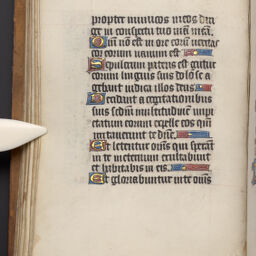 propter inimicos meos diri
ge in conspectu tuo viam meā.
Qm̄ nō est in ore eorū veritas
cor eorum vanum est
Sepulcrum patens est guttur
eorum linguis suis dolose a
gebant iudica illos deus
Decidant a cogitationibus
suis scdm̄ multitudinē impi
etatum eorum expelle eos qm̄
irritaverunt te dn̄e.
Et letentur om̄s qui sperāt
in te in eternum exultabunt
et habitabis in eis.
Et gloriabuntur in te om̄s